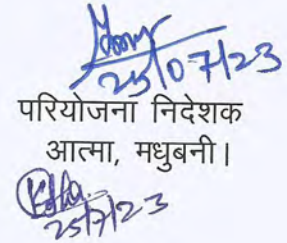 25/07/23
परियोजना निदेशक
आत्मा, मधुबनी।
25/7/23